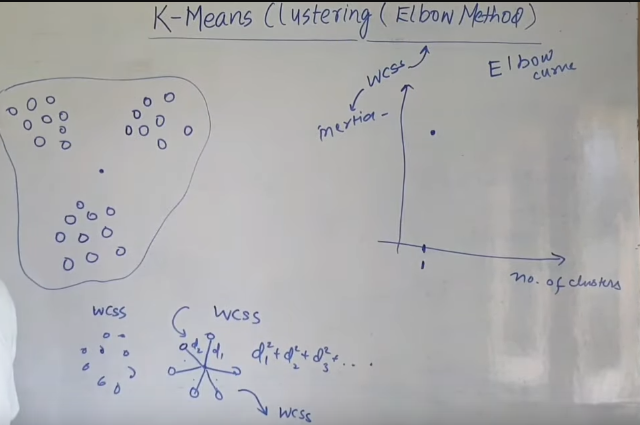 K-Means Clustering (Elbow Method)
WCSS
Elbow
curve
inertia -
1
no. of clusters
WCSS
WCSS
d₂ d₁
d₁² + d₂² + d₃² + ....
WCSS